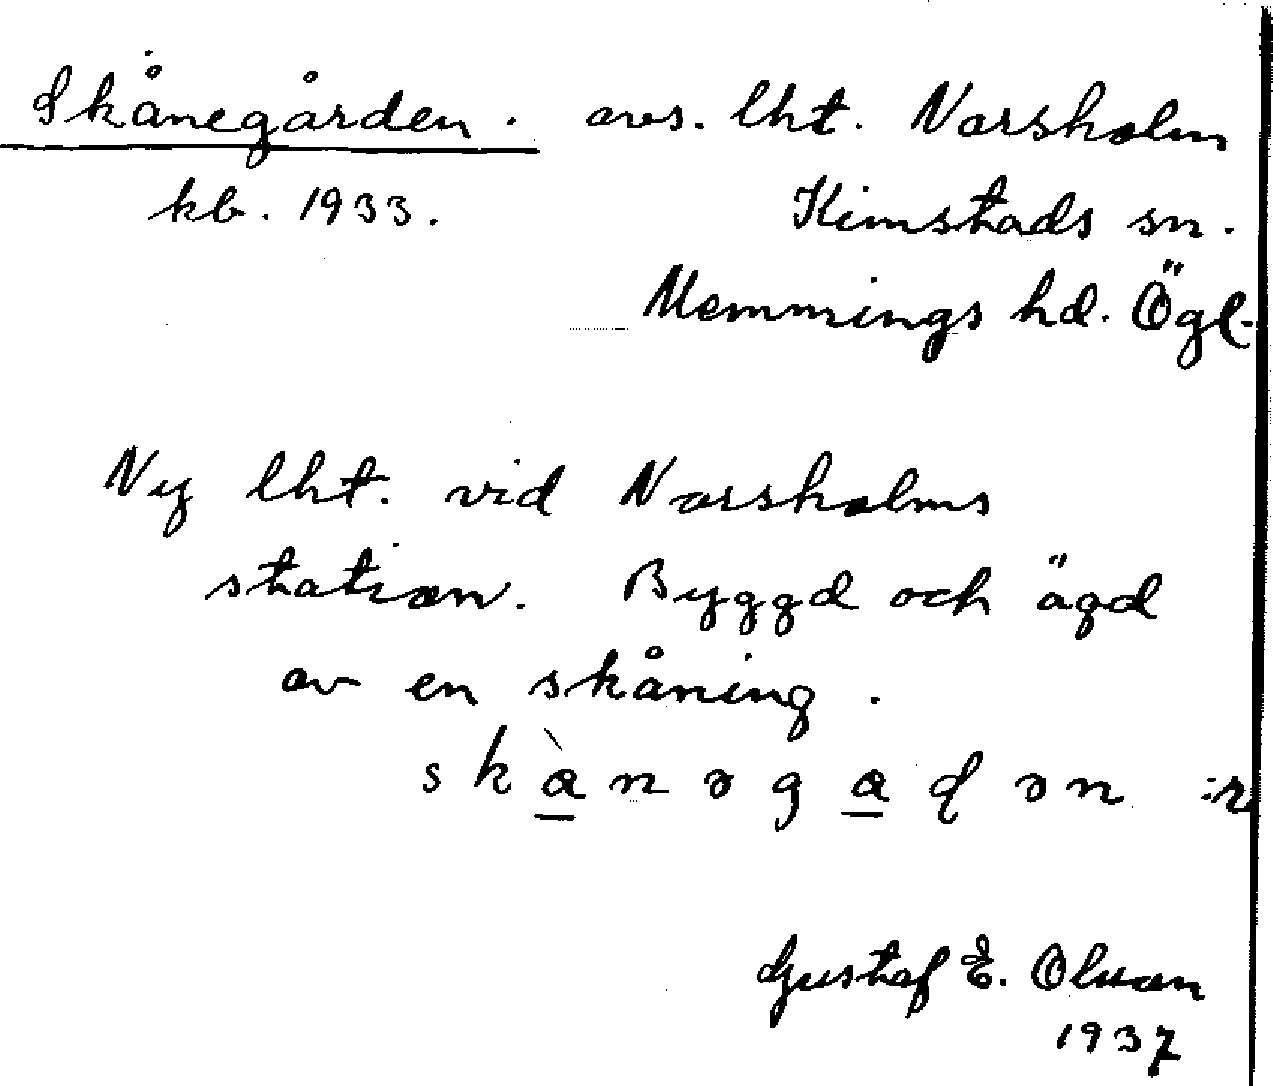 Skånegården. avs. lht. Norsholm
kb. 1933. Kimstads sn.
Memmings hd. Ögl.
Ny lht. vid Norsholms
station. Byggd och ägd
av en skåning.
Gustaf E. Olsson
1937